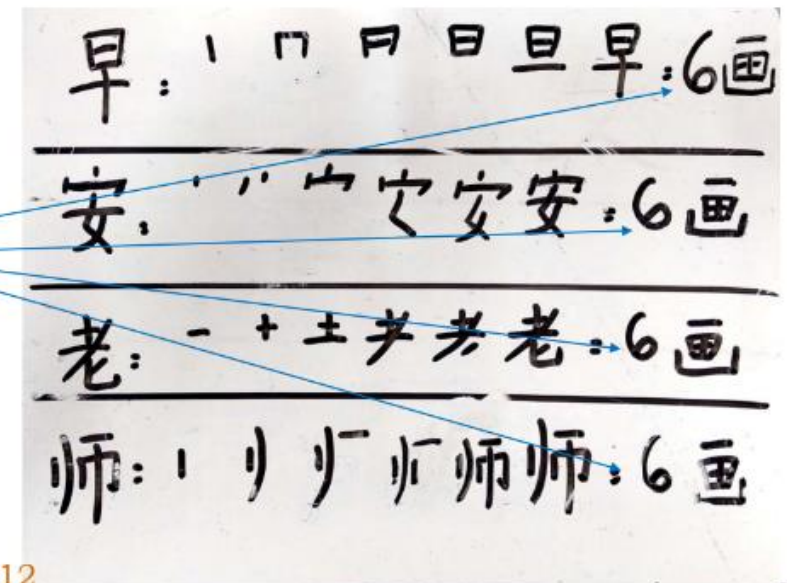 早: 丨 冂 日 日 旦 早: 6画
安: 丶 丷 宀 安 安: 6画
老: 一 十 土 耂 老: 6画
师: 丨 丨丿 师 师: 6画
12